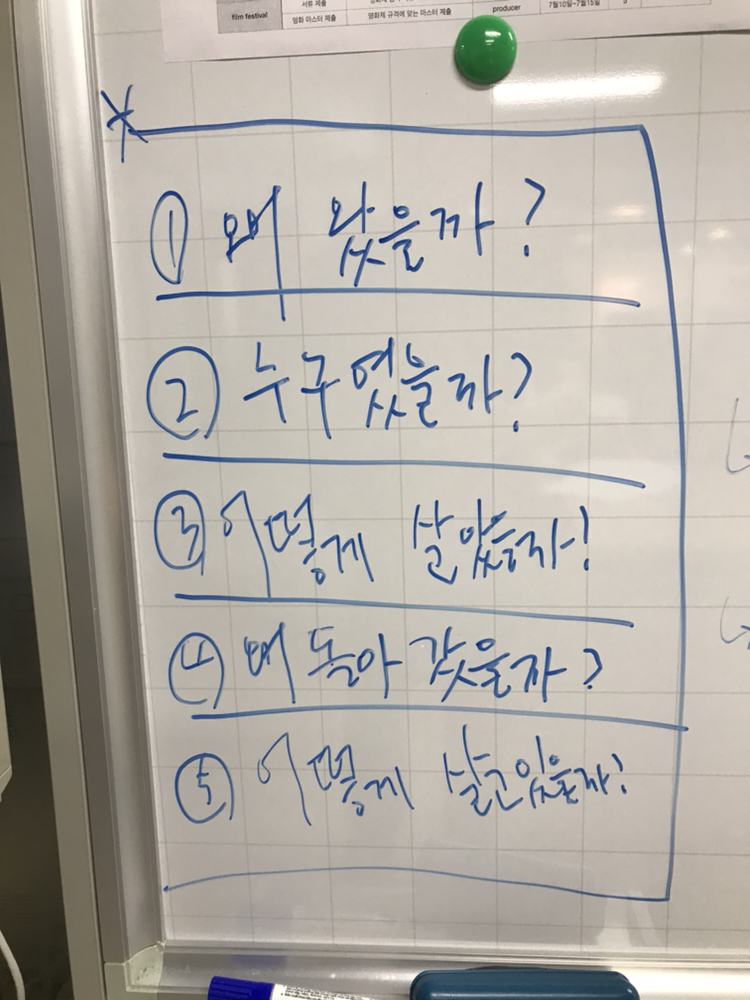 서류 제출
film festival
영화 마스터 제출 영화제 규격에 맞는 마스터 제출 producer 7월10일~7월15일
① 왜 왔을까?
② 누구였을까?
③ 어떻게 살았을까?
④ 왜 돌아갔을까?
⑤ 어떻게 살고있을까?